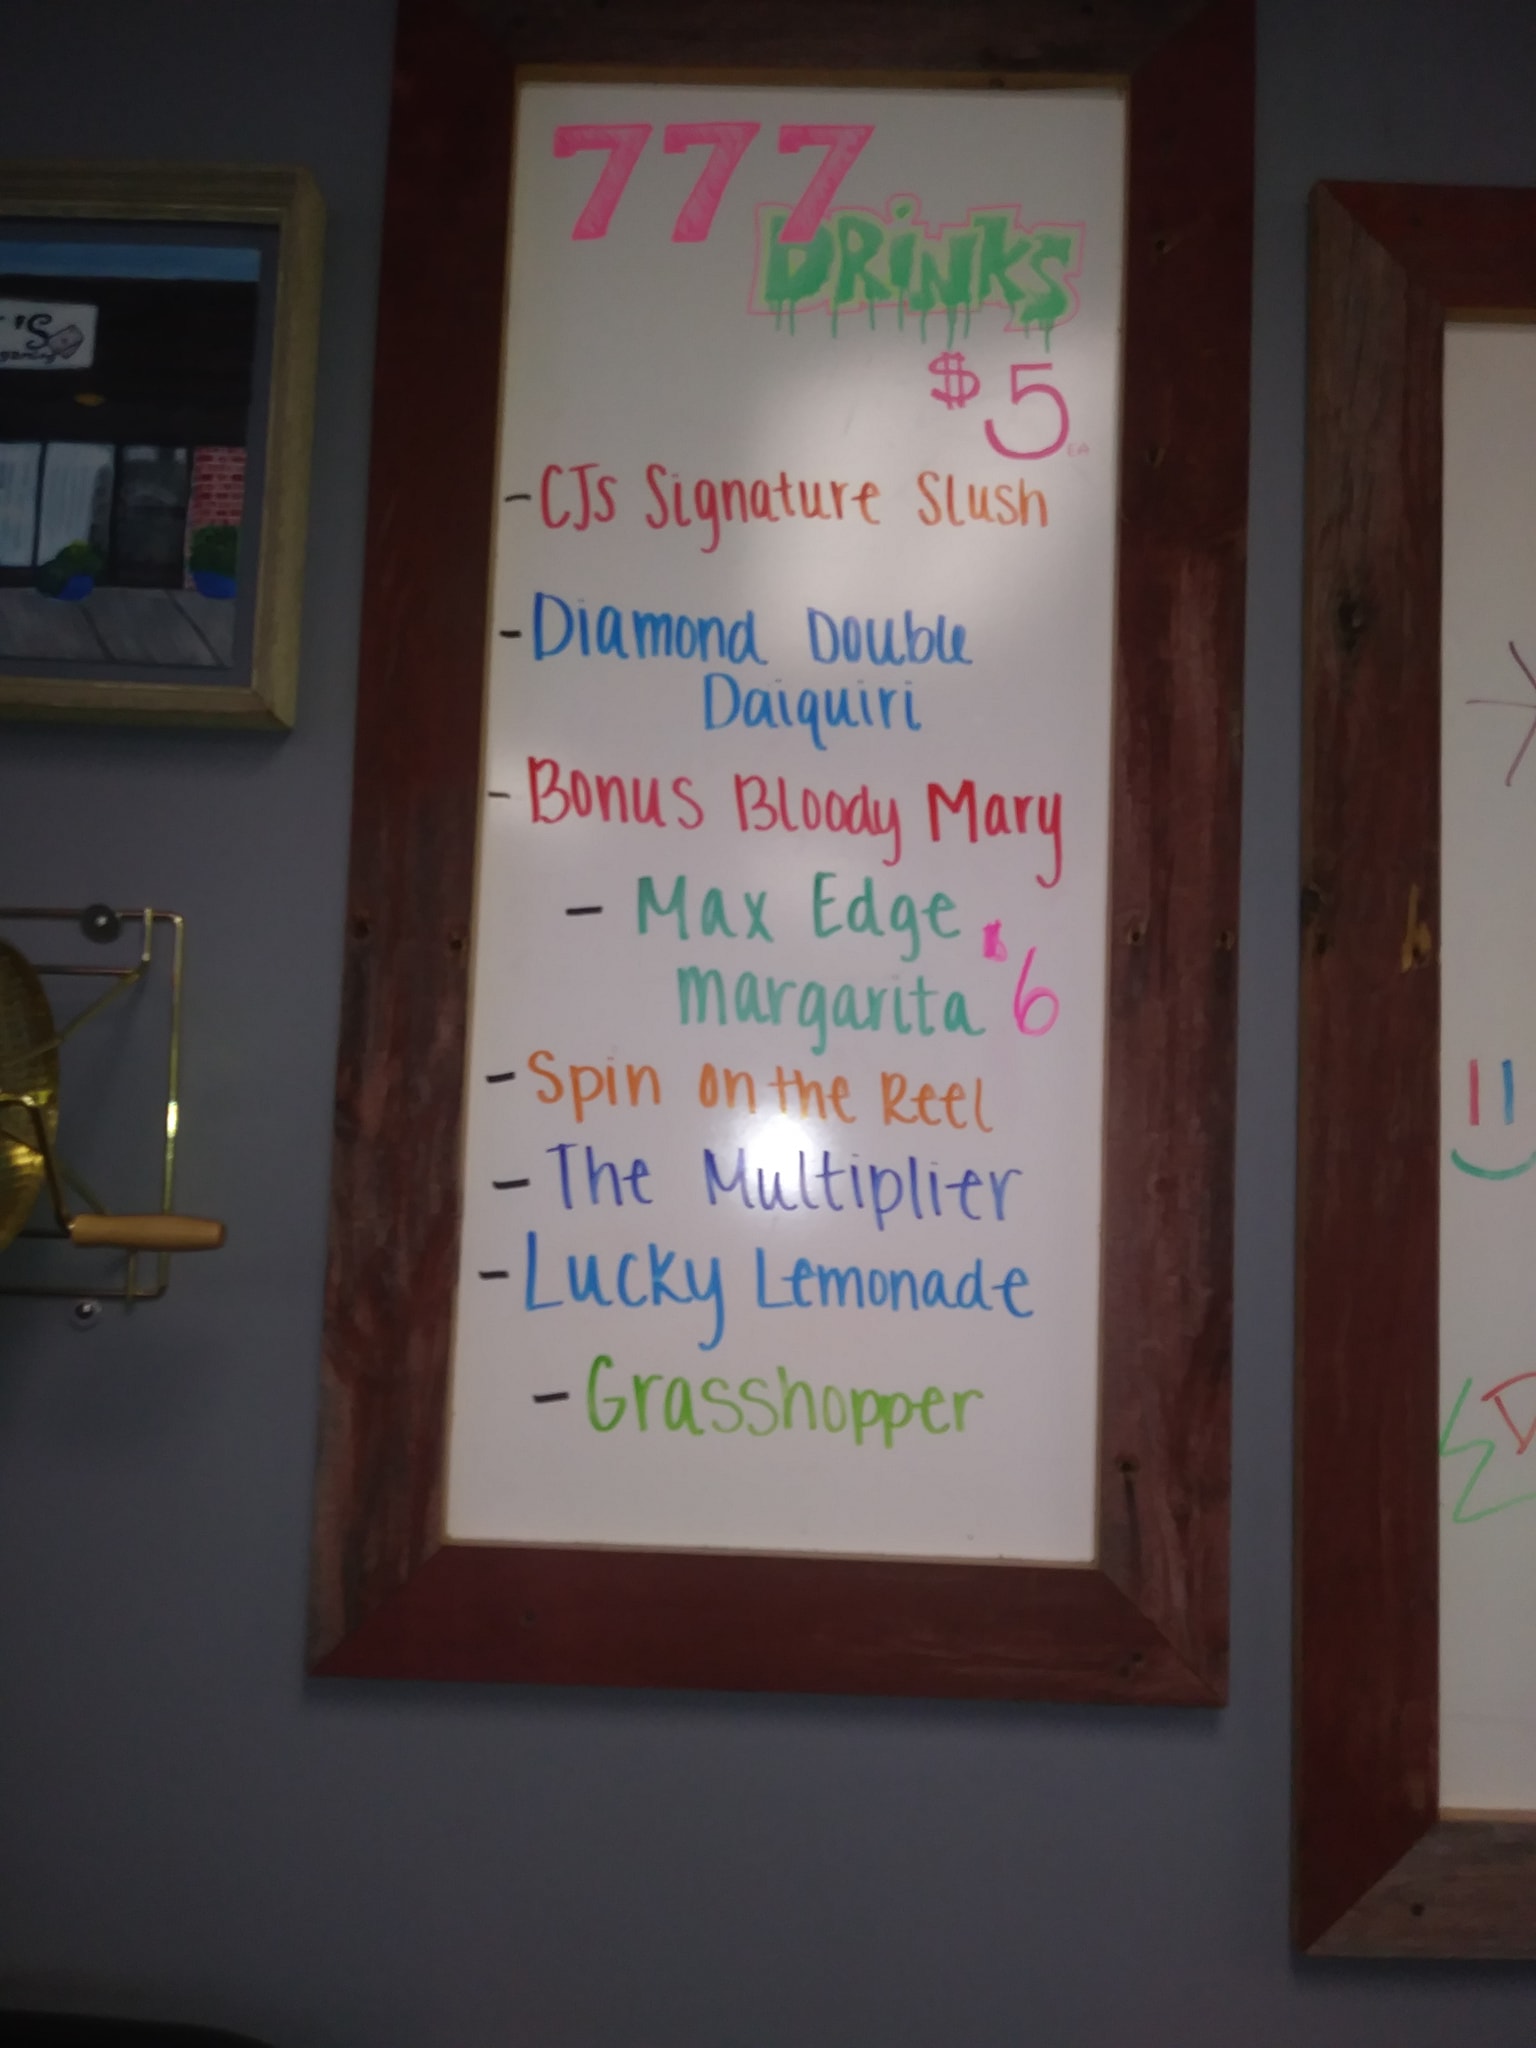 'S
gaming
777
DRiNKS
$5 EA
- CJs Signature Slush
- Diamond Double
Daiquiri
- Bonus Bloody Mary
- Max Edge
margarita $6
- Spin on the Reel
- The Multiplier
- Lucky Lemonade
- Grasshopper